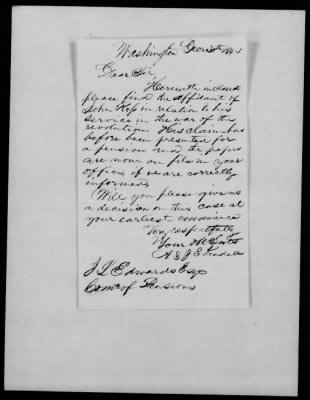 Washington
Dear Sir
Herewith inclosed
please find the affidavit of
John in relation to his
service in the war of the
revolution. His claim has
before been presented for
a pension and the papers
are now on file in your
office, if we are correctly
informed.
Will you please give us
a decision on this case at
your earliest convenience
Very respectfully
Your Obt Servts
A & J E Kendall
J L Edwards Esqr
Comr of Pensions